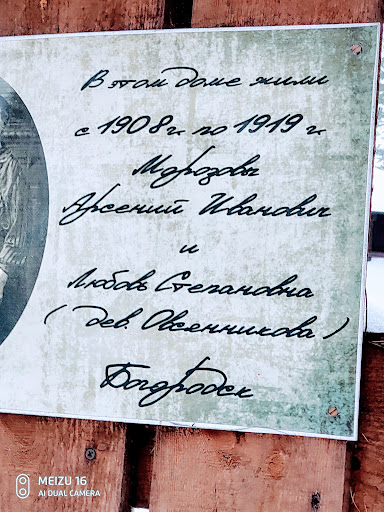 В этом доме жили
с 1908 г. по 1919 г.
Морозовы
Арсений Иванович
и
Любовь Степановна
( дев. Овсянникова )
Богородск
MEIZU 16
AI DUAL CAMERA